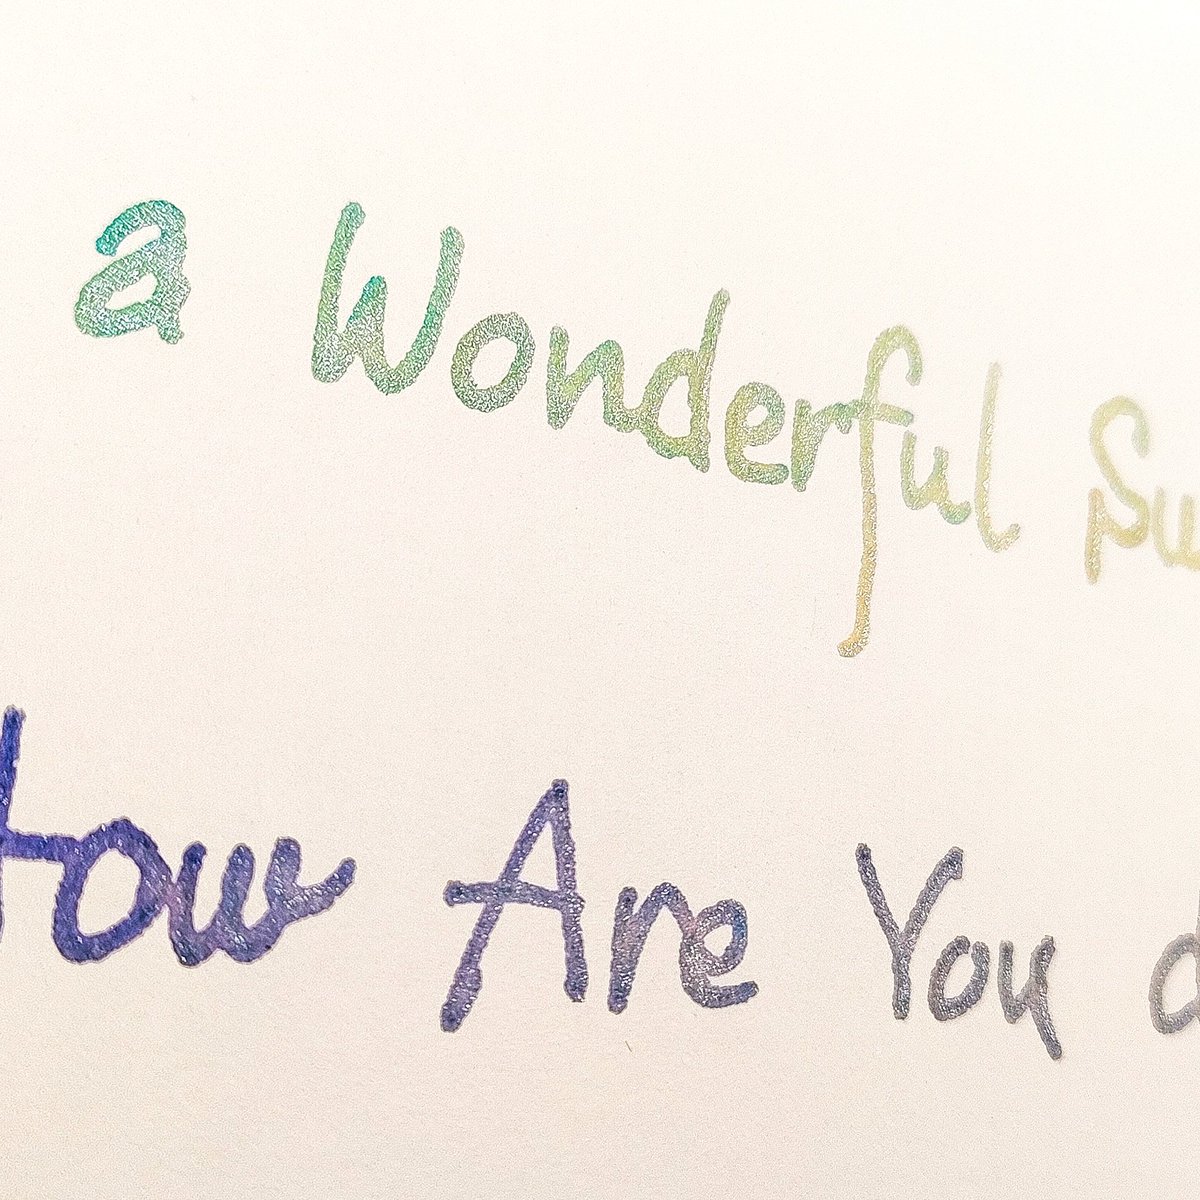 a Wonderful Su
How Are You d